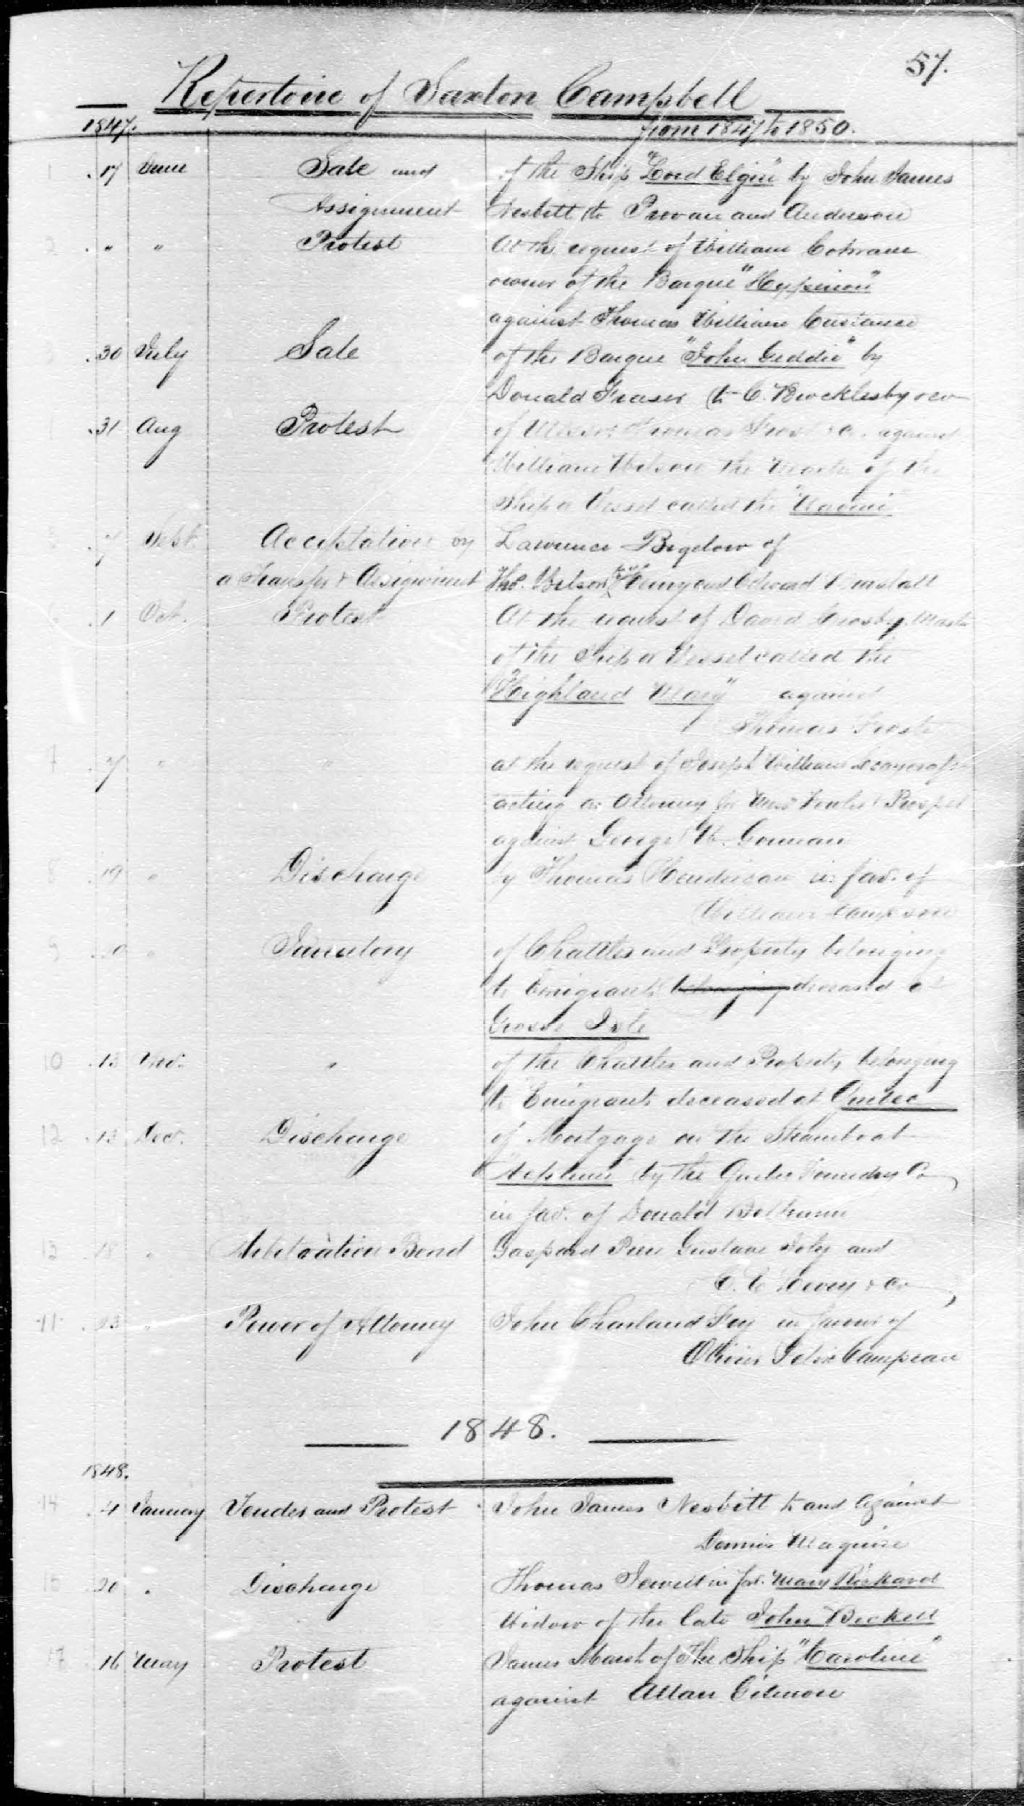 57.
Repertoire of Saxton Campbell
1847. from 1847 to 1850.
1 17 June Sale and of the Ship "Lord Elgin" by John James
Assignment Nesbitt to Provan and Anderson
2 " " Protest At the request of William Cohrane
owner of the Barque "Hyperion"
against Thomas William Custance
3 30 July Sale of the Barque "John Geddie" by
Donald Fraser to C. Brocklesby & co
31 Aug Protest of Messrs Thomas Frost & Co. against
William Wilson the Master of the
Ship or Vessel called the
7 Sept. Acceptation by Lawrence Bigelow of
a Transfer & Assignment Thos. Wilson Henry and Edward Burstall
1 Oct. Protest At the request of David Crosby, Master
of the Ship or Vessel called the
"Highland Mary" against
Thomas Frost
7 7 " " at the request of Joseph William
acting as Attorney for Messrs Fowler & Prosper
against George W.
8 19 " Discharge by Thomas Henderson in fav. of
William Simpson
9 " of Chattles and Property belonging
to Emigrants belonging deceased at
Grosse Isle
10 13 Nov. " of the Chattles and Property belonging
to Emigrants deceased at Quebec
12 13 Dec. Discharge of Mortgage on the Steamboat
"Neptune" by the Quebec Foundry Co
in fav. of Donald
13 18 " Arbitration Bond Gaspard Pierre Gustave Joly and
& Co
11 " Power of Attorney John Charland in favour of
Felix Campeau
1848.
1848.
14 4 January Tender and Protest John James Nesbitt to and Against
Dennis Maguire
15 20 " Discharge Thomas Jewell in fav. Mary Rickard
Widow of the late John Beckett
17 16 May Protest James Marsh of The Ship "Caroline"
against Allan Gilmour